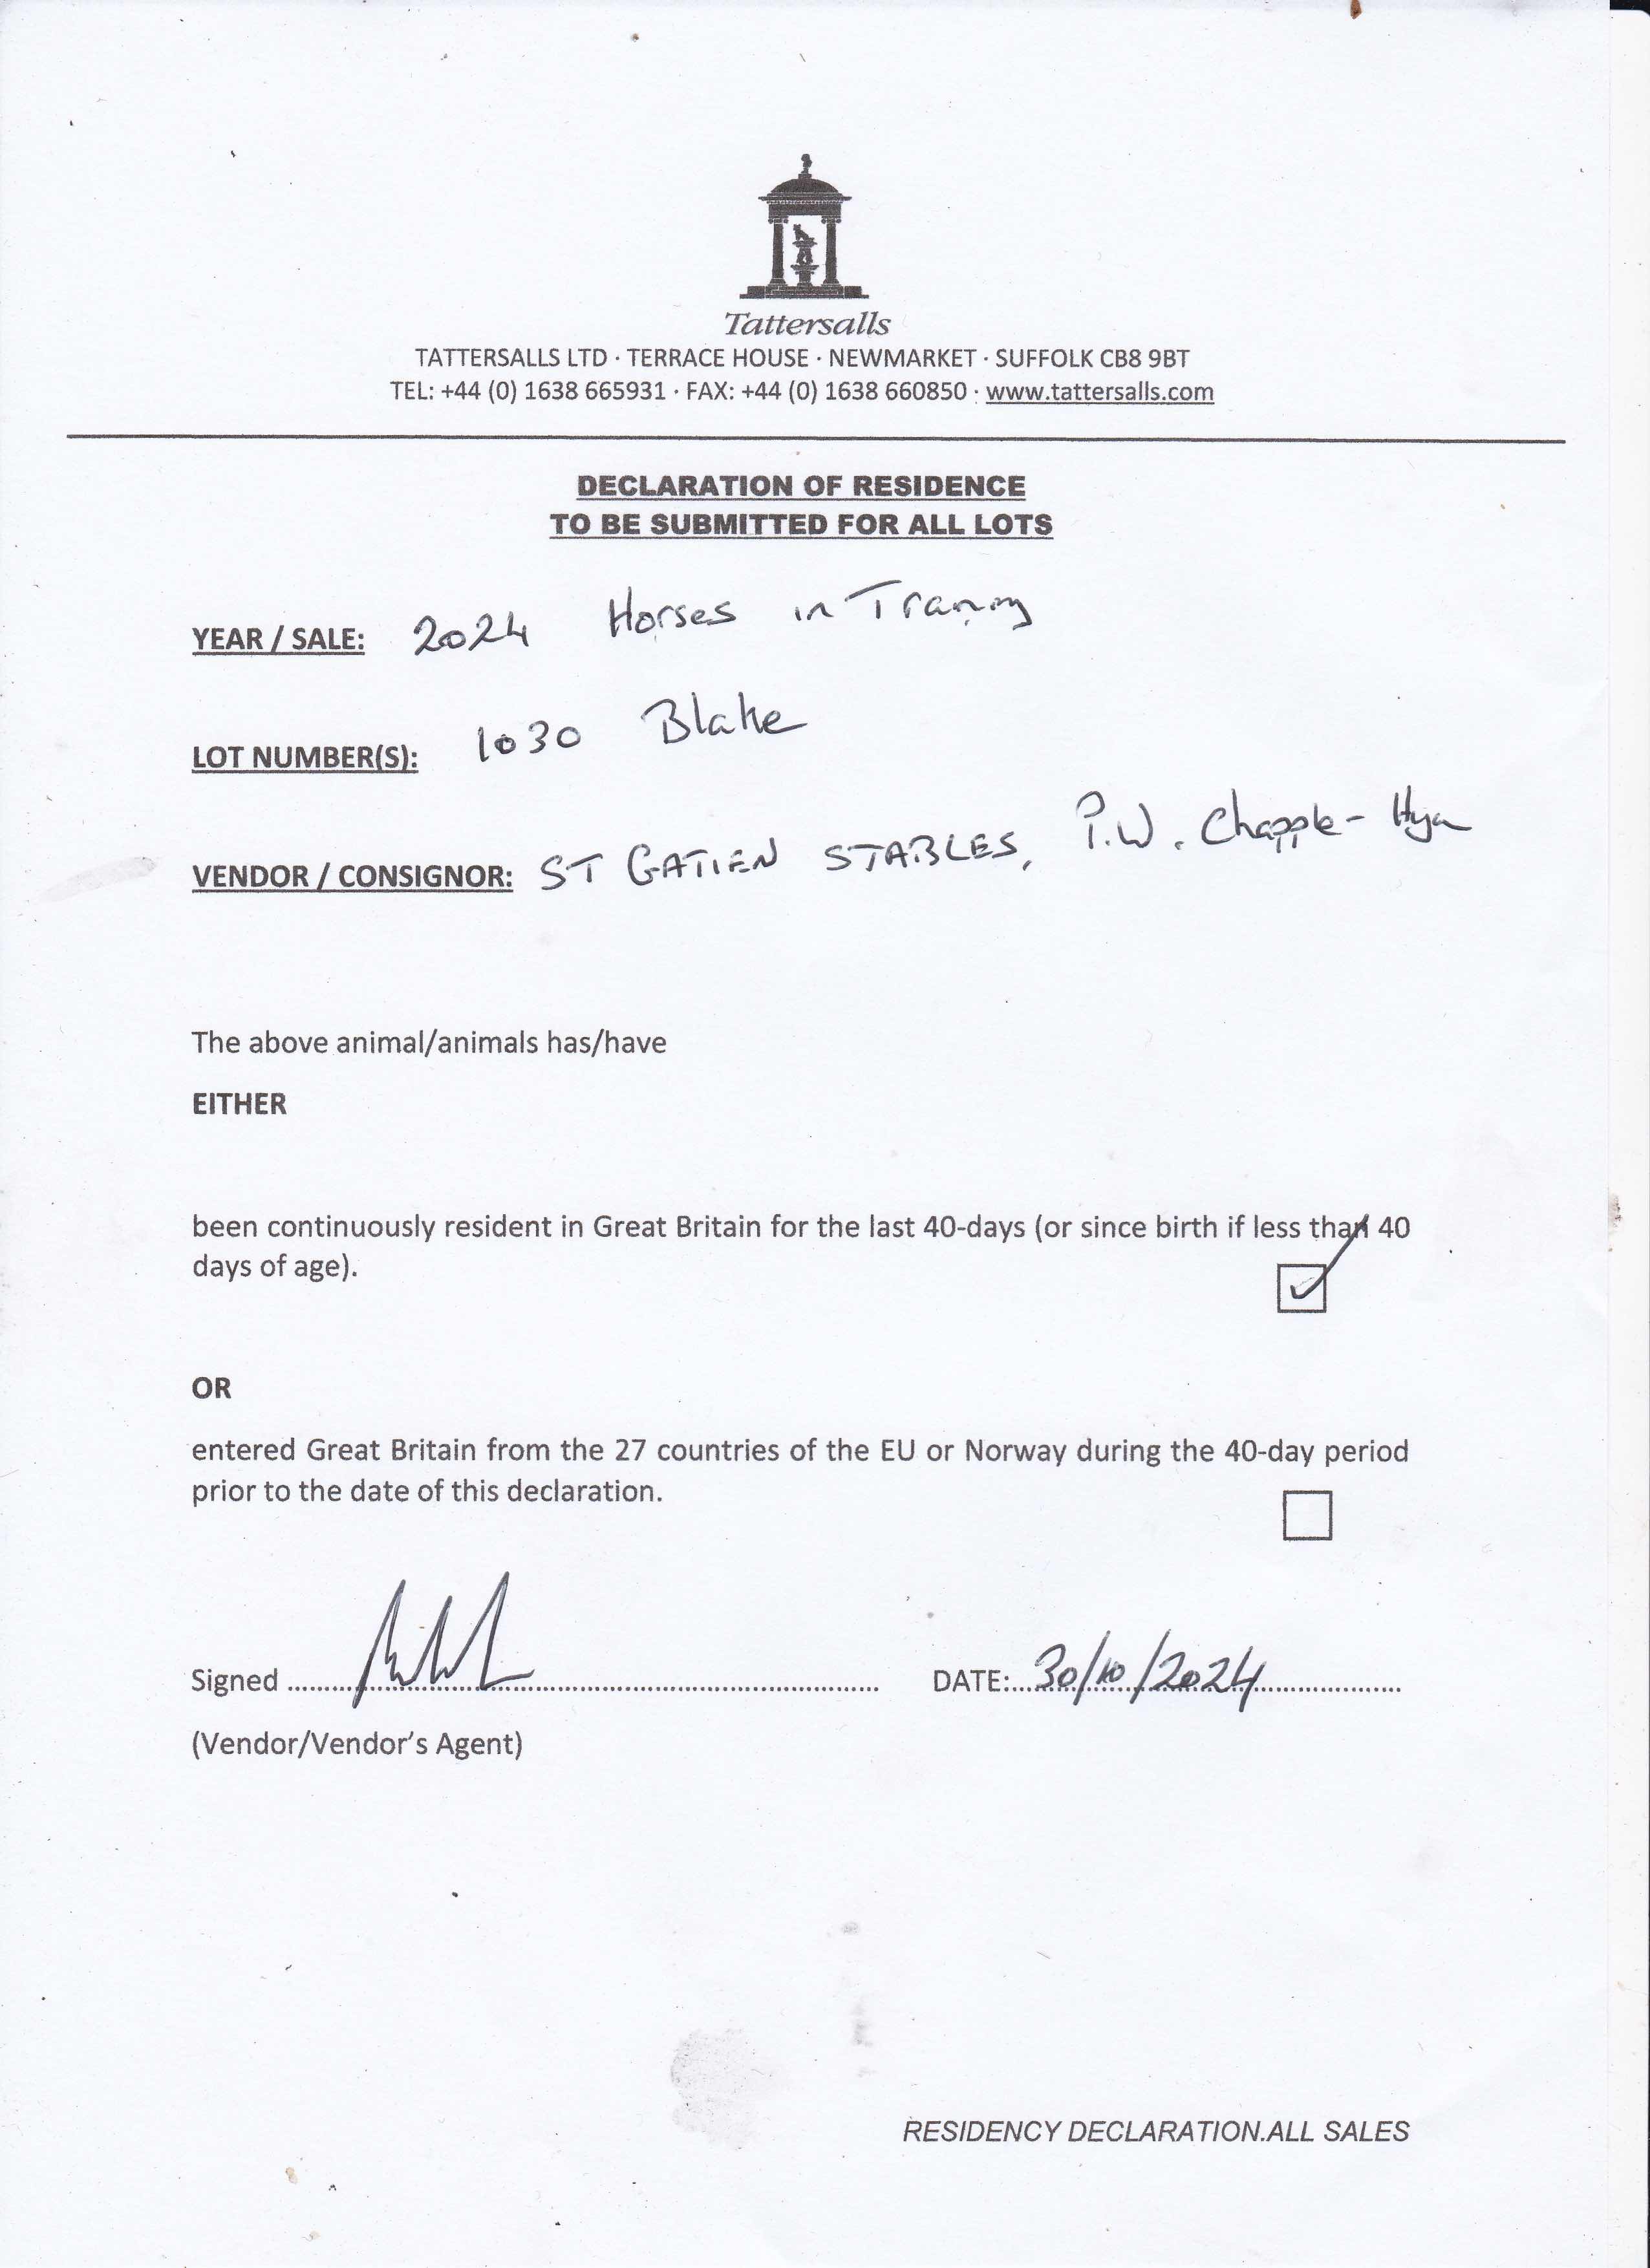 Tattersalls
TATTERSALLS LTD · TERRACE HOUSE · NEWMARKET · SUFFOLK CB8 9BT
TEL: +44 (0) 1638 665931 · FAX: +44 (0) 1638 660850 · www.tattersalls.com
DECLARATION OF RESIDENCE
TO BE SUBMITTED FOR ALL LOTS
YEAR / SALE: 2024 Horses in Training
LOT NUMBER(S): 1030 Blake
VENDOR / CONSIGNOR: ST GATIEN STABLES, P.W. Chapple-Hyam
The above animal/animals has/have
EITHER
been continuously resident in Great Britain for the last 40-days (or since birth if less than 40
days of age).
OR
entered Great Britain from the 27 countries of the EU or Norway during the 40-day period
prior to the date of this declaration.
Signed .......... DATE:...30/10/2024..........
(Vendor/Vendor's Agent)
RESIDENCY DECLARATION.ALL SALES